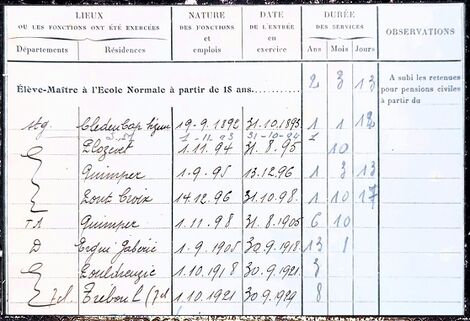 LIEUX NATURE DATE DURÉE
OU LES FONCTIONS ONT ÉTÉ EXERCÉES DES FONCTIONS DE L'ENTRÉE DES SERVICES OBSERVATIONS
et en
Départements Résidences emplois exercice Ans Mois Jours
Élève-Maître à l'Ecole Normale à partir de 18 ans 2 3 13 A subi les retenues
pour pensions civiles
à partir du
stg Cleden Cap Sizun 19.9.1892 31.10.1893 1 1 12
1-11.93 31-10-94 1
Plozevet 1.11.94 31.8.95 10
Quimper 1.9.95 13.12.96 1 3 13
Pont Croix 14.12.96 31.10.98 1 10 17
Quimper 1.11.98 31.8.1905 6 10
D Ergué Gabéric 1.9.1905 30.9.1918 13 1
Pouldreuzic 1.10.1918 30.9.1921 3
7cl. Tréboul (7cl 1.10.1921 30.9.1929 8